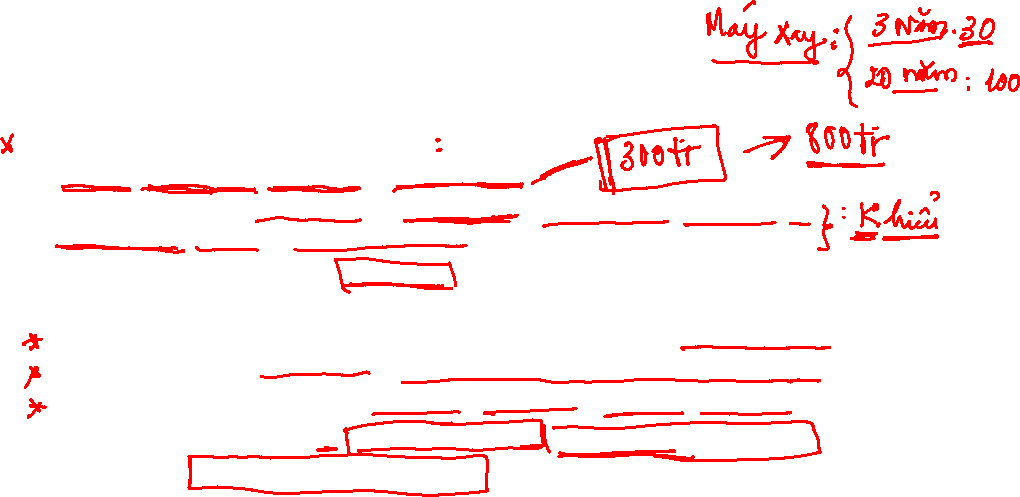 Máy xay : { 3 năm . 30
20 năm : 100
x : 300tr → 800tr
} : K hiểu
*
*
*